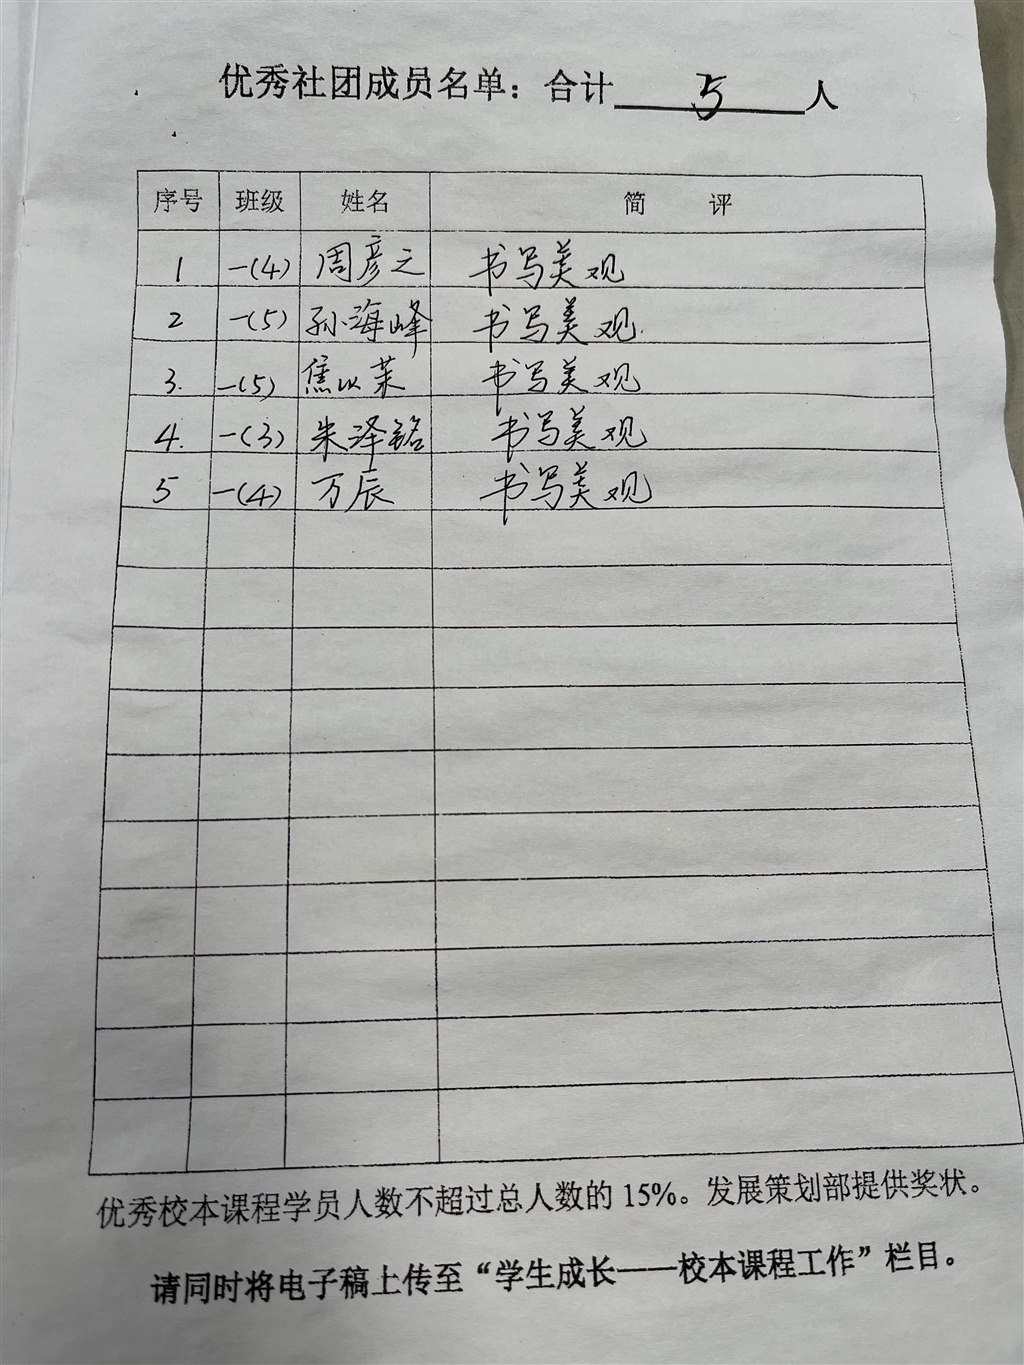 优秀社团成员名单：合计 5 人
序号 班级 姓名 简 评
1 一(4) 周彦之 书写美观
2 一(5) 孙海峰 书写美观.
3. 一(5) 焦以茉 书写美观
4. 一(3) 朱泽铭 书写美观
5 一(4) 万辰 书写美观
优秀校本课程学员人数不超过总人数的 15%。发展策划部提供奖状。
请同时将电子稿上传至“学生成长——校本课程工作”栏目。